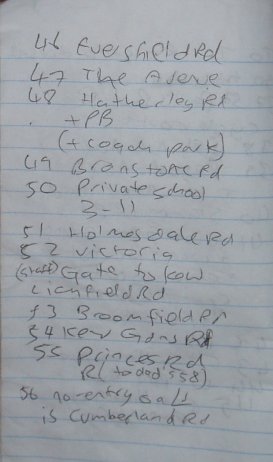 46 Evershield Rd
47 The Avenue
48 Hatherley Rd
+ PB
(+ coach park)
49 Branstone Rd
50 Private school
3-11
51 Holmesdale Rd
52 Victoria
(staff) Gate to Kew
Lichfield Rd
53 Broomfield Rd
54 Kew Gdns Rd
55 Princes Rd
R (to dad's 58)
56 no entry
is Cumberland Rd